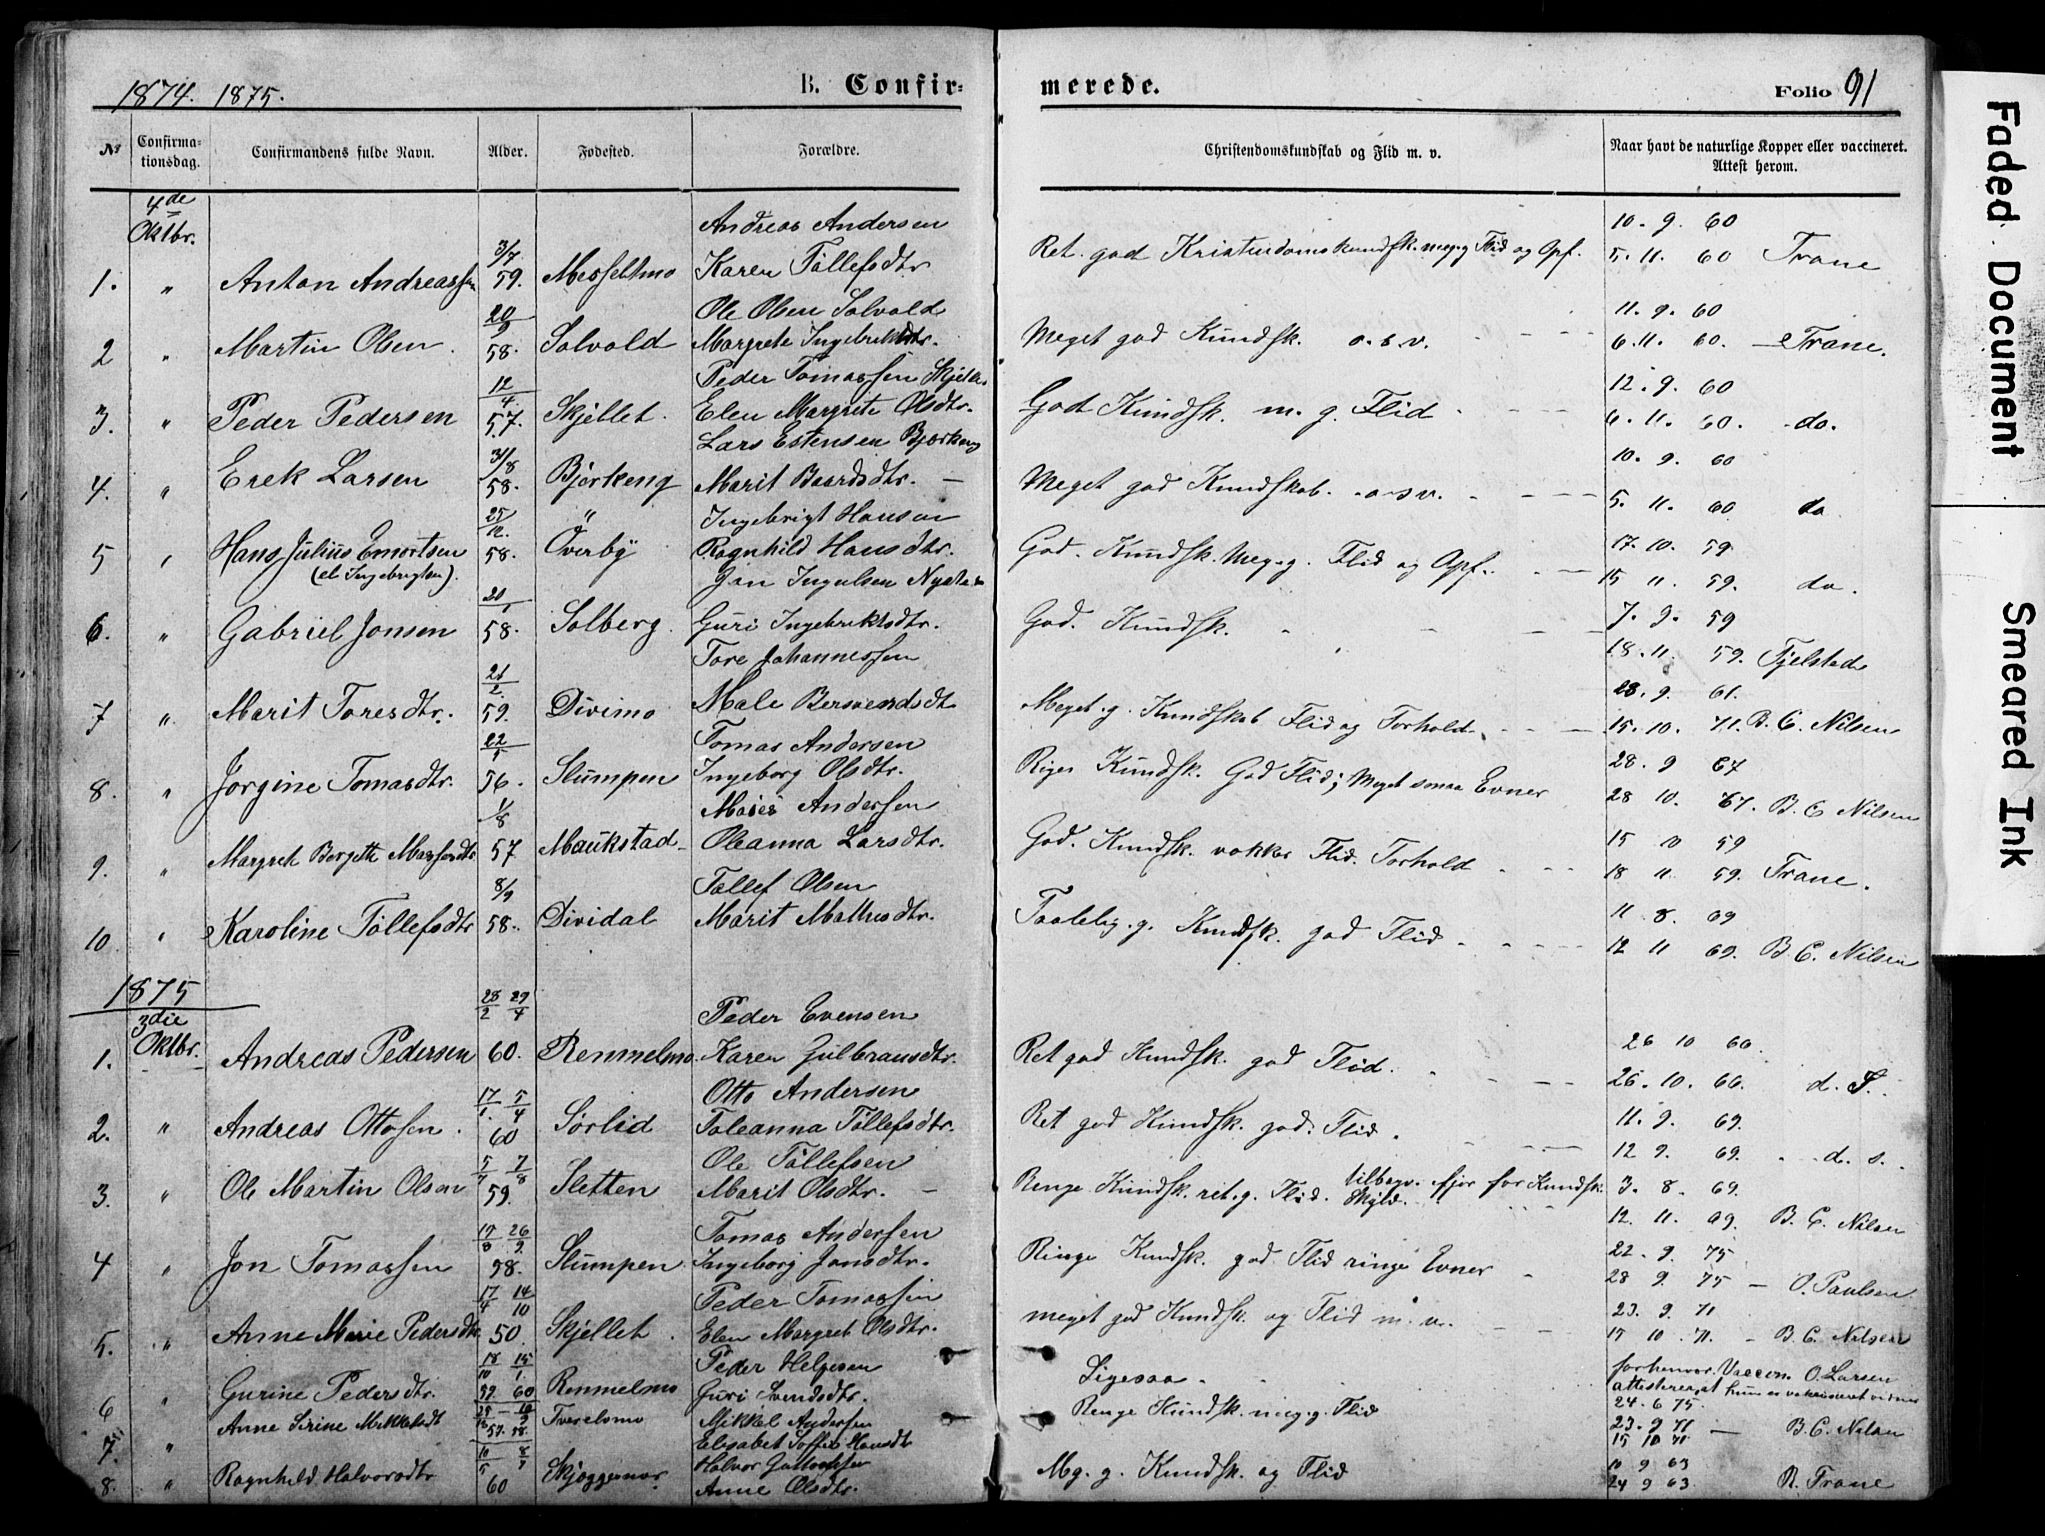 1874. 1875.
B. Confir-
merede.
Folio 91
№
Confirma-
tionsdag.
Confirmandens fulde Navn.
Alder.
Fødested.
Forældre.
Christendomskundskab og Flid m. v.
Naar havt de naturlige Kopper eller vaccineret.
Attest herom.
4de
Oktbr.
Andreas Andersen
10. 9. 60
1. " Anton Andreassen 3/7 59. Messeltmo Karen Tollefsdtr
Ret god Kristendomskundsk. meg. g Flid og Opf. 5. 11. 60 Trane
Ole Olsen Solvold
11. 9. 60
2 " Martin Olsen 20/9 58. Solvold Margrete Ingebriktsdtr.
Meget god Kundsk. o.s.v. 6. 11. 60. Trane.
Peder Tomassen
12. 9. 60
3. " Peder Pedersen 12/4 57. Skjellet. Elen Margrete Olsdtr.
God Kundsk. m. g. Flid 6. 11. 60. do.
Lars Estensen Bjørkeng
10. 9. 60
4. " Erek Larsen 31/8 58. Bjørkeng Marit Baardsdtr.
Meget god Kundskab. o s v. 5. 11. 60 do
Ingebrigt Hansen
17. 10. 59
5 " Hans Julius Emortsen 25/12. 58. Øverby Ragnhild Hansdtr.
(el Ingebrigtsen).
God. Kundsk. Meg. g. Flid og Opf. 15 11. 59. do.
Jon Ingulsen
7. 9. 59
6. " Gabriel Jonsen 20/1 58. Solberg. Guri Ingebriktsdtr.
God. Kundsk. 18. 11. 59. Fjelstad
Tore Johannessen
28. 9. 61.
7 " Marit Toresdtr. 21/2. 59. Divimo Male Bersvendsdt
Meget. g. Kundskab Flid og Forhold. 15. 10. 71. B. C. Nilsen
Tomas Andersen
28. 9 67
8. " Jorgine Tomasdtr. 22/5 56. Slumpen Ingeborg Olsdtr.
Ringe Kundsk. God Flid; Meget smaa Evner 28 10. 67. B. C Nilsen
Andersen
15 10 59
9. " Margret Bergette 1/8 57 Maukstad Oleanna Larsdtr.
God. Kundsk. vakker Flid. Forhold 18 11. 59. Trane.
Tollef Olsen
11 8. 69
10 " Karoline Tollefsdtr 8/9 58. Dividal Marit Mathisdtr.
Taalelig. g. Kundsk. god Flid 12 11 69. B. C. Nilsen
1875
3die
Oktbr.
Peder Evensen
26 10 66.
1. Andreas Pedersen 28/2 29/4 60. Remmelmo. Karen Gulbransdtr.
Ret god Kundsk. god Flid. 26. 10. 66. d. S.
Otto Andersen
11. 9. 69.
2. " Andreas Ottosen. 17/1. 5/4 60 Sørlid Toleanna Tollefsdtr.
Ret god Kundsk. god. Flid. 12 9. 69. d. s.
Ole Tollefsen
3. " Ole Martin Olsen 5/7 7/8 59. Sletten Marit Olsdtr.
Ringe Kundsk. ret. g. Flid. fjor for Kundsk. 3. 8. 69.
12. 11. 69. B. C. Nilsen
Tomas Andersen
22. 9. 75
4 " Jon Tomassen 58. Slumpen Ingeborg Jonsdtr.
Ringe Kundsk. god Flid ringe Evner 28 9. 75 — O. Paulsen
Peder Tomassen
23. 9. 71
5. " Anne Marie Pedersdtr 17/4 14/10 Skjellet. Elen Margret Olsdtr.
meget god Kundsk. og Flid m. v. 10. 71. — B. C. Nilsen
Peder Helgesen
forhenvær. Vaccin. O. Larsen
6 " Gurine Pedersdtr. 59. 60 Remmelmo Guri Svendsdtr.
Ligesaa
24. 6 75.
7. " Anne Serine Mikkelsdt Mikkel Andersen
Elisabet Hansdt
Ringe Kundsk. meg. g. Flid 23. 9 71 — B. C. Nilsen
15 10 71
Halvor
10 9 63
8. " Ragnhild Halvorsdtr 60 Anne Olsdtr.
Mg. g. Kundsk. og Flid 24 9 63 R. Trane
Faded Document
Smeared Ink